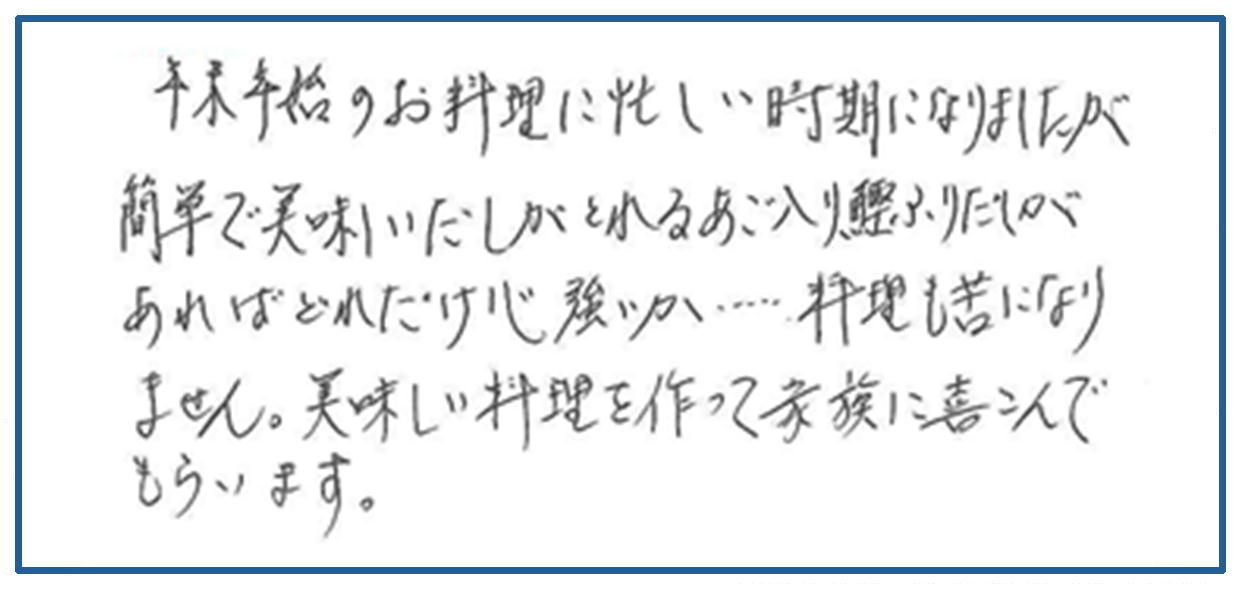 年末年始のお料理に忙しい時期になりましたが
簡単で美味しいだしがとれるあご入り鰹ふりだしが
あればどれだけ心強いか……料理も苦になり
ません。美味しい料理を作って家族に喜こんで
もらいます。